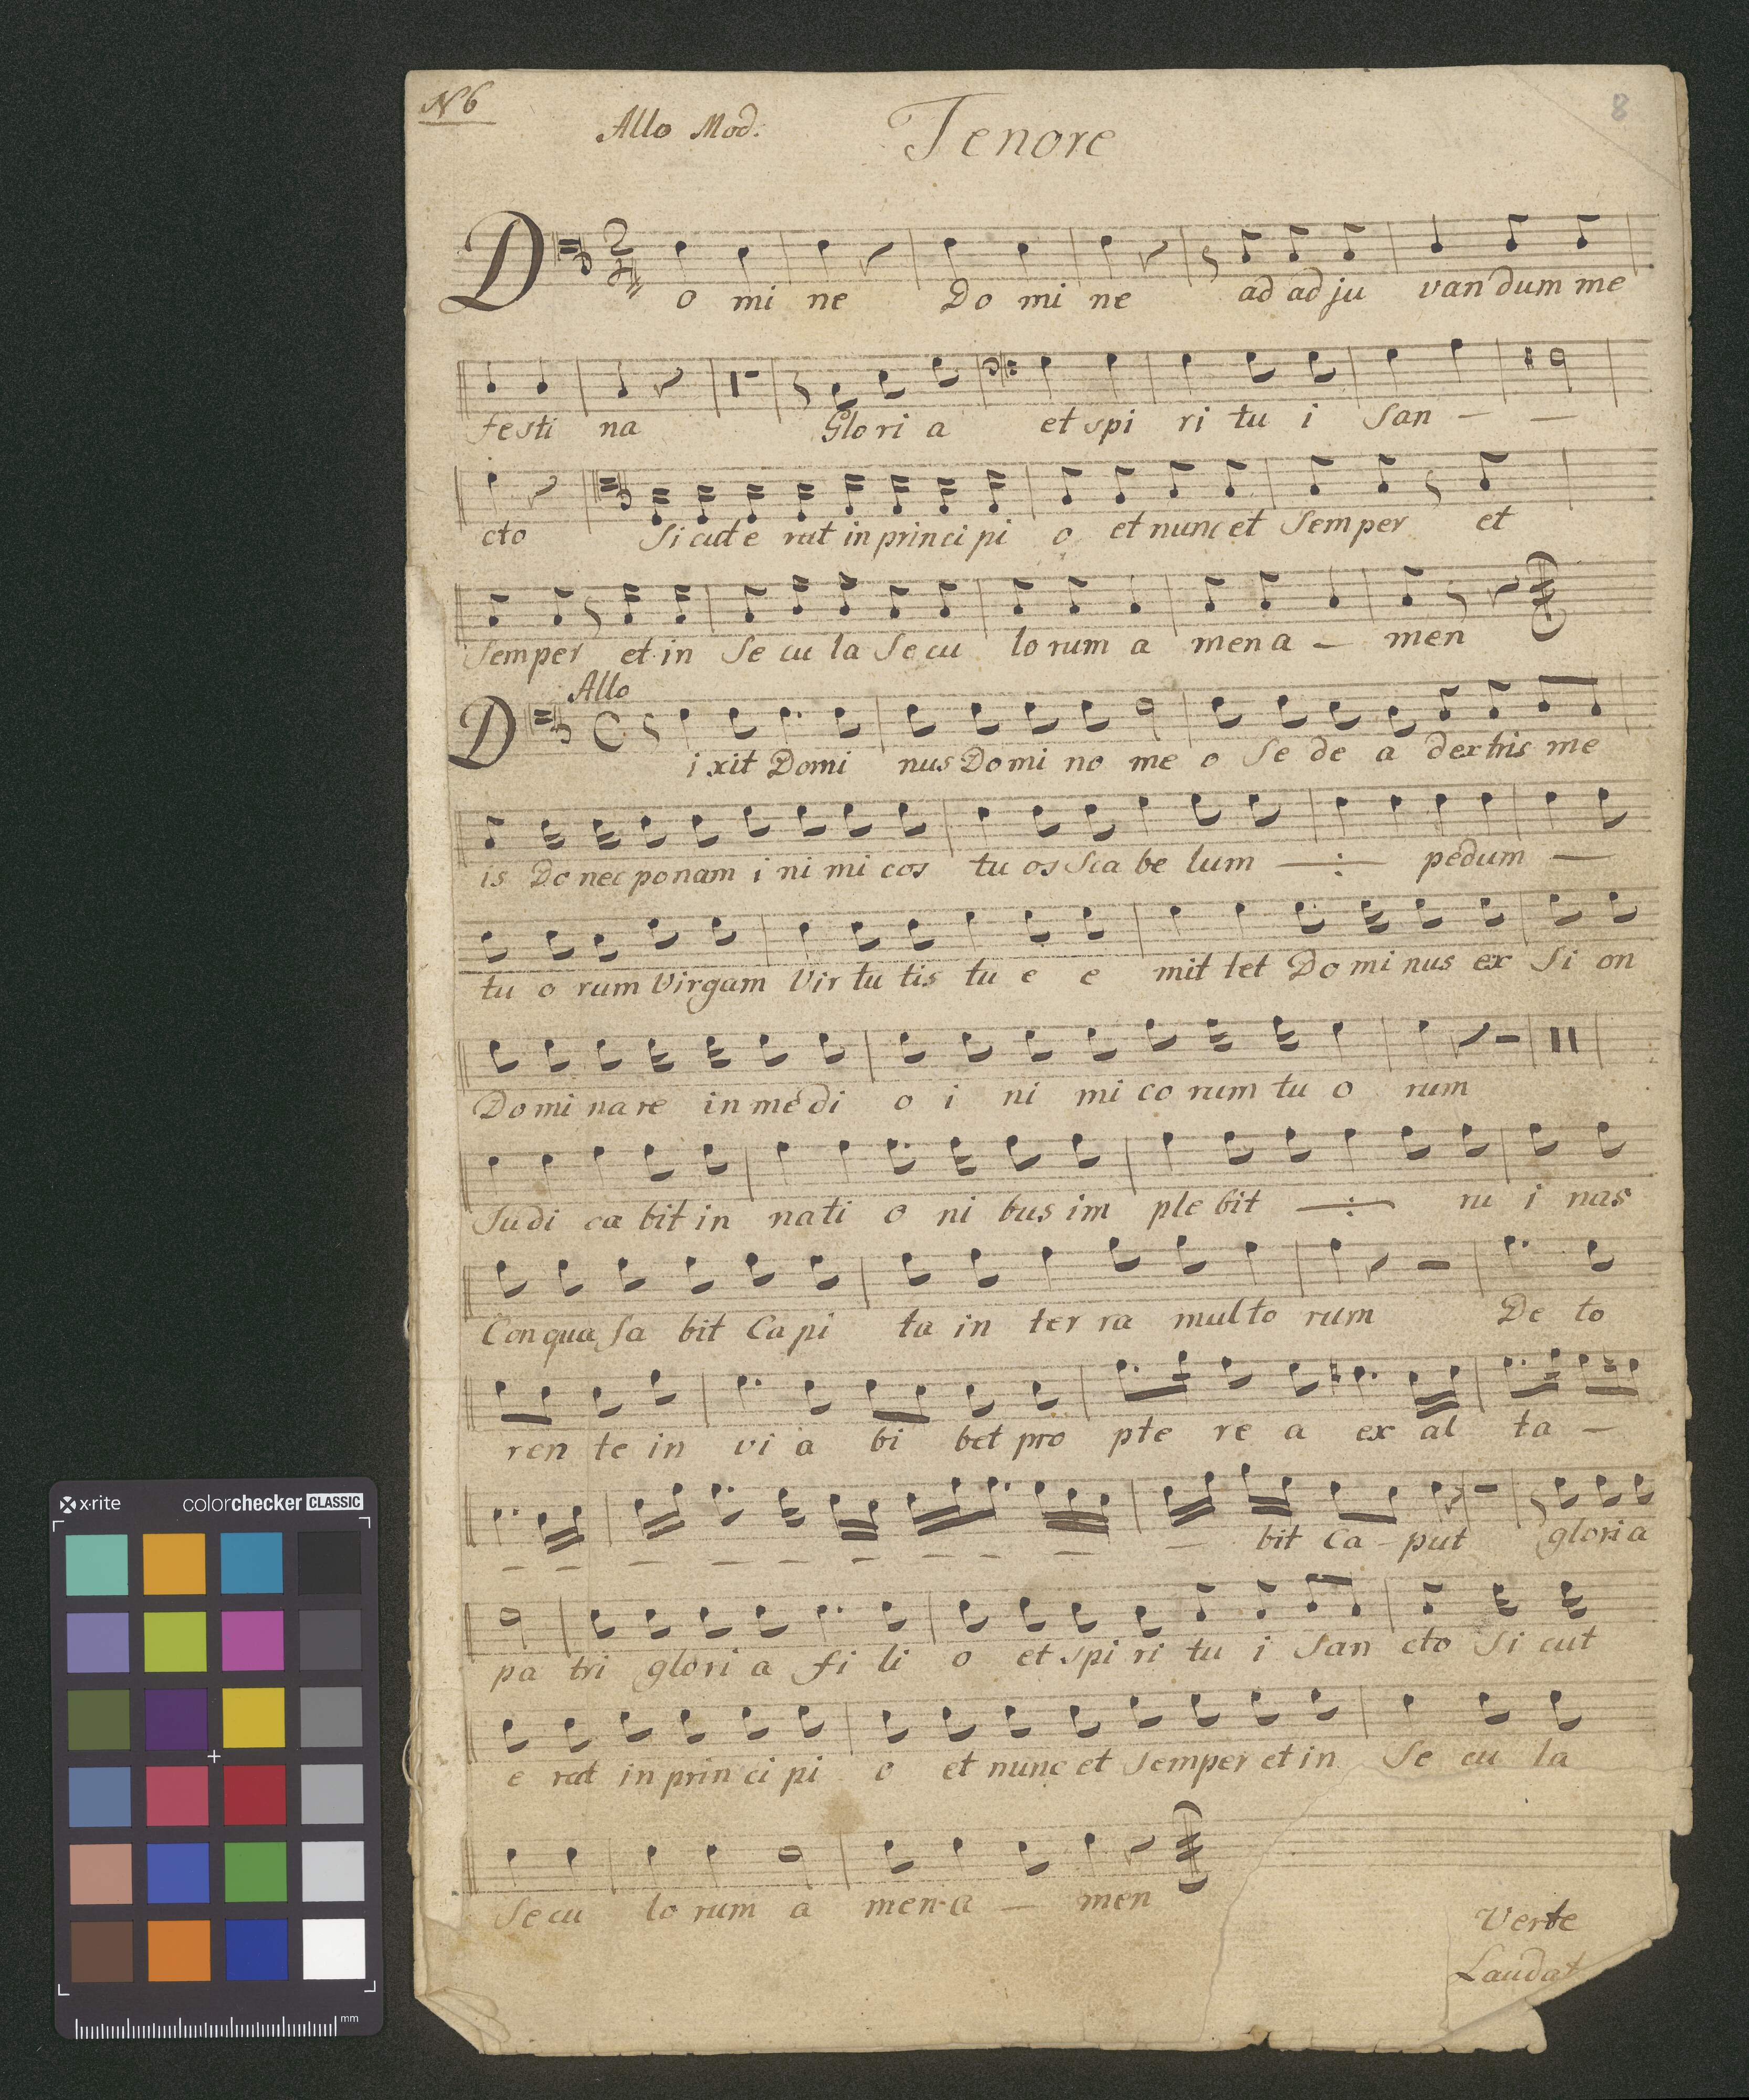 N 6
8
Allo Mod: Tenore
D o mi ne Do mi ne ad ad ju van dum me
festi na Glo ri a et spi ri tu i San -
cto Si cut e rat in prin ci pi o et nunc et Semper et
Semper et in Se cu la Se cu lo rum a men a - men
Allo
D C i xit Domi nus Domi no me o Se de a dextris me
is Do nec ponam i ni mi cos tu os Sca be lum pedum
tu o rum Virgam Vir tu tis tu e e mit tet Do mi nus ex Si on
Do mi na re in medi o i ni mi co rum tu o rum
Judi ca bit in nati o ni bus im ple bit ru i nas
Con qua sa bit Ca pi ta in ter ra multo rum De to
ren te in vi a bi bet pro pte re a ex al ta -
bit Ca - put gloria
pa tri glo ri a fi li o et spi ri tu i San cto Si cut
e rat in prin ci pi o et nunc et Semper et in Se cu la
Se cu lo rum a men-a - men
Verte
Laudat
x-rite colorchecker CLASSIC
mm